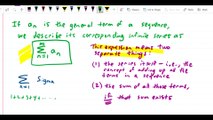 If an is the general term of a sequence,
we describe its corresponding infinite series as
∞
Σ an
n=1
This expression means two
separate things:
(1) the series itself - i.e., the
concept of adding up all the
terms in a sequence
∞
Σ
n=1
1+2+3+4+...
(2) the sum of all those terms,
if that sum exists